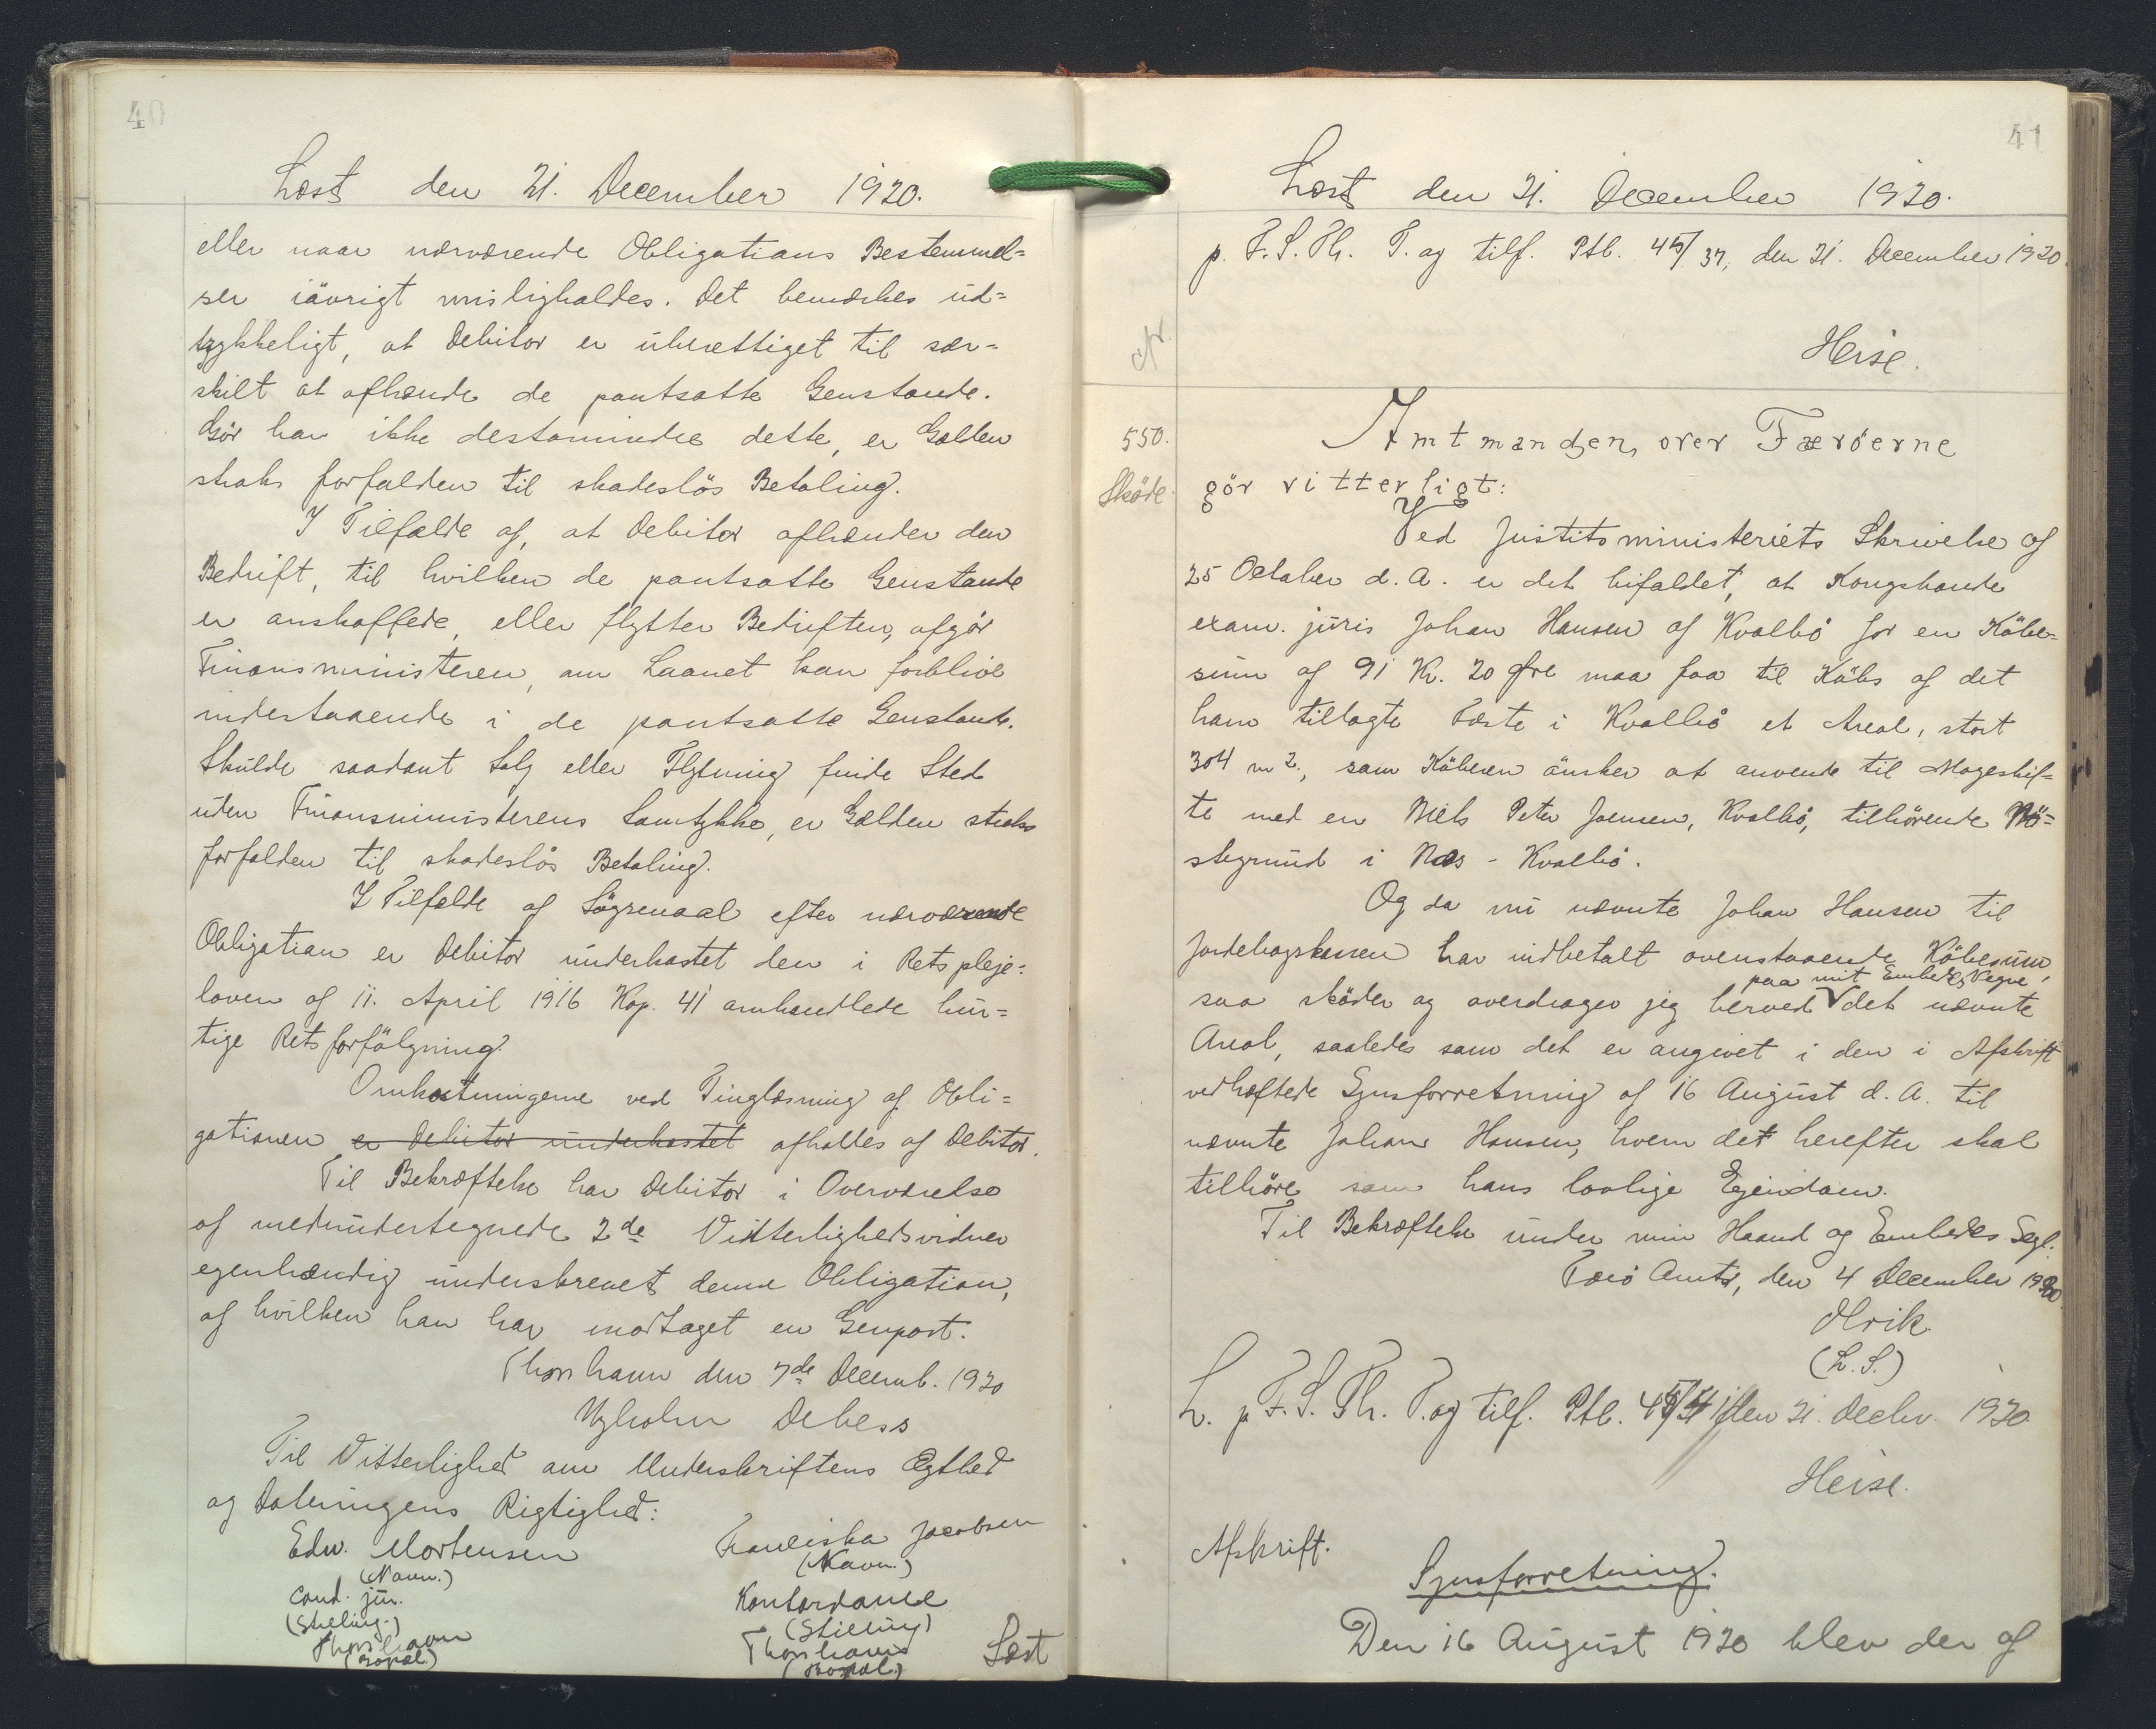 40
Læst den 21. December 1920.
eller naar nærværende Obligations Bestemmel=
ser iøvrigt misligholdes. Det bemærkes ud=
trykkeligt, at Debitor er uberettiget til sær=
skilt at afhænde de pantsatte Genstande.
Gör han ikke destomindre dette, er Gælden
straks forfalden til skadeslös Betaling.
I Tilfælde af, at Debitor afhænder den
Bedrift, til hvilken de pantsatte Genstande
er anskaffede, eller flytter Bedriften, afgör
Finansministeren, om Laanet kan forblive
indestaaende i de pantsatte Genstande.
Skulde saadant Salg eller Flytning finde Sted
uden Finansministerens Samtykke, er Gælden straks
forfalden til skadeslös Betaling.
I Tilfælde af Sögsmaal efter nærværende
Obligation er Debitor underkastet den i Retspleje=
loven af 11. April 1916 Kap. 41 omhandlede hur=
tige Retsforfölgning.
Omkostningerne ved Tinglæsning af Obli=
gationen er Debitor underkastet afholdes af Debitor.
Til Bekræftelse har Debitor i Overværelse
af medundertegnede 2de Vitterlighedsvidner
egenhændig underskrevet denne Obligation,
af hvilken han har modtaget en Genpart.
Thorshavn den 7de Decemb. 1920
Debess
Til Vitterlighed om Underskriftens Ægthed
og Dateringens Rigtighed:
Edw. Mortensen Franciska Jacobsen
(Navn.) (Navn.)
cand. jur. Kontordame
(Stilling.) (Stilling)
Thorshavn Thorshavn
(Bopæl.) (Bopæl.) Læst
41
Læst den 21. December 1920.
p. F. S. Th. T. og tilf. Ptb. 45/37, den 21. December 1920.
Heise.
550.
Sköde.
Amtmanden over Færöerne
gör vitterligt:
Ved Justitsministeriets Skrivelse af
25 October d. A. er det bifaldet, at Kongsbonde
exam. juris Johan Hansen af Kvalbö for en Köbe=
sum af 91 Kr. 20 Øre maa faa til Köbs af det
ham tillagte Fæste i Kvalbö et Areal, stort
304 m2., som Köberen önsker at anvende til Mageskif=
te med en Niels Peter Joensen, Kvalbö, tilhörende Nö=
stegrund i Næs - Kvalbö.
Og da nu nævnte Johan Hansen til
Jordebogskassen har indbetalt ovenstaaende Köbesum,
paa mit Embedes Vegne
saa sköder og overdrager jeg herved det nævnte
Areal, saaledes som det er angivet i den i Afskrift
vedhæftede Synsforretning af 16 August d. A. til
nævnte Johan Hansen, hvem det herefter skal
tilhöre som hans lovlige Ejendom.
Til Bekræftelse under min Haand og Embedes Segl.
Færö Amt, den 4 December 1920.
Ølrik
(L. S.)
L. p. F. S. Th. T. og tilf. Ptb. den 21. Decbr. 1920
Heise.
Afskrift.
Synsforretning.
Den 16 August 1920 blev der af